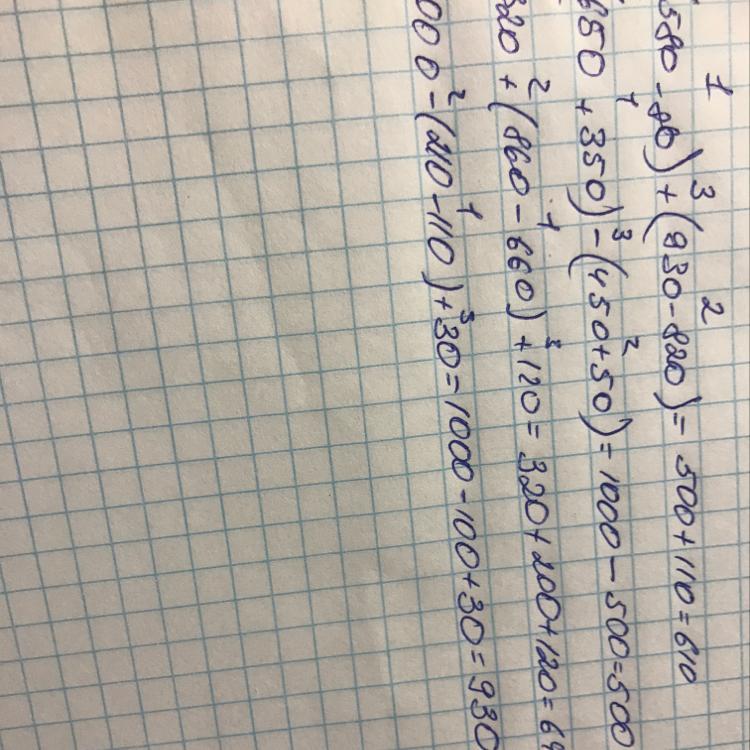 580 - 80) + (930 - 820) = 500 + 110 = 610
650 + 350) - (450 + 50) = 1000 - 500 = 500
320 + (860 - 660) + 120 = 320 + 200 + 120 = 64
000 - (210 - 110) + 30 = 1000 - 100 + 30 = 930